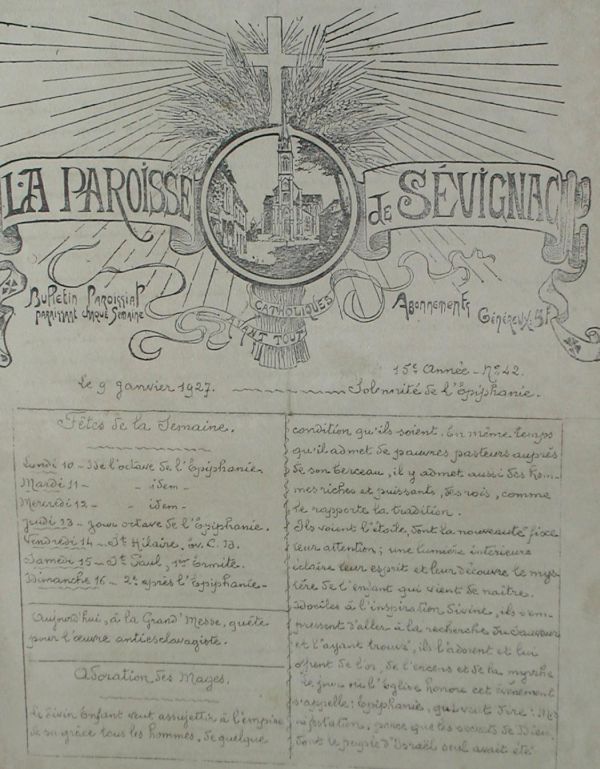 LA PAROISSE
de SÉVIGNAC
Bulletin Paroissial
paraissant chaque Semaine
CATHOLIQUES
AVANT TOUT
Abonnements
Généreux: 5f
15e Année - No 42.
Le 9 Janvier 1927.
Solennité de l'Épiphanie.
Fêtes de la Semaine.
Lundi 10 - de l'octave de l'Épiphanie.
Mardi 11 - - idem -
Mercredi 12 - - idem -
Jeudi 13 - Jour octave de l'Épiphanie.
Vendredi 14 - St Hilaire, év. C. D.
Samedi 15 - St Paul, 1er Ermite.
Dimanche 16 - 2e après l'Épiphanie -
Aujourd'hui, à la Grand' Messe, quête
pour l'œuvre antiesclavagiste.
Adoration des Mages.
Le divin Enfant veut assujettir à l'empire
de sa grâce tous les hommes, de quelque
condition qu'ils soient. En même temps
qu'il admet de pauvres pasteurs auprès
de son berceau, il y admet aussi des hom-
mes riches et puissants, des rois, comme
le rapporte la tradition.
Ils voient l'étoile, dont la nouveauté fixe
leur attention; une lumière intérieure
éclaire leur esprit et leur découvre le mys-
tère de l'enfant qui vient de naître.
Dociles à l'inspiration divine, ils s'em-
pressent d'aller à la recherche du Sauveur
et l'ayant trouvé, ils l'adorent et lui
offrent de l'or, de l'encens et de la myrrhe
Le jour où l'Église honore cet événement
s'appelle: Épiphanie, qui veut dire: Ma-
nifestation, parce que les secrets de Dieu,
dont le peuple d'Israël seul avait été